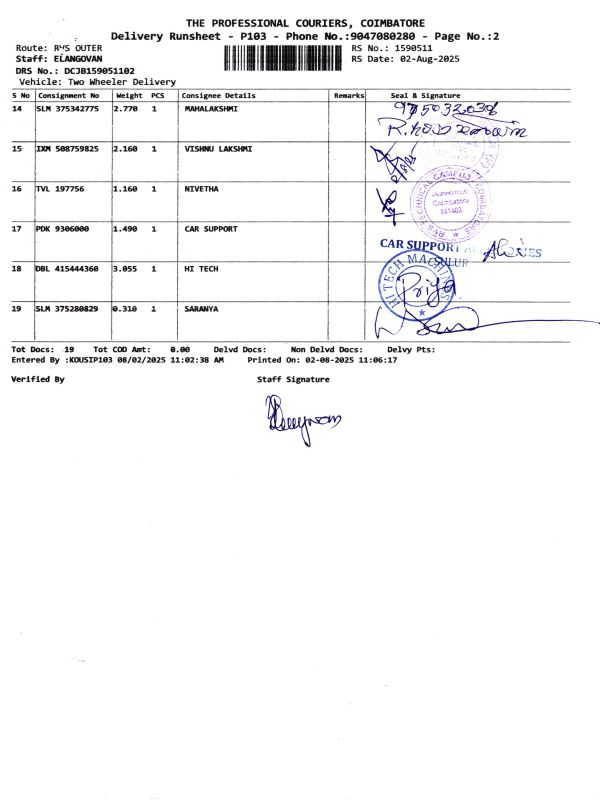 THE PROFESSIONAL COURIERS, COIMBATORE
Delivery Runsheet - P103 - Phone No.:9047080280 - Page No.:2
Route: RMS OUTER
RS No.: 1590511
Staff: ELANGOVAN
RS Date: 02-Aug-2025
DRS No.: DCJB159051102
Vehicle: Two Wheeler Delivery
S No Consignment No Weight PCS Consignee Details Remarks Seal & Signature
14 SLM 375342775 2.770 1 MAHALAKSHMI
15 IXM 508759825 2.160 1 VISHNU LAKSHMI
16 TVL 197756 1.160 1 NIVETHA
RVS TECHNICAL CAMPUS COIMBATORE
Autonomous
Coimbatore
641402
17 PDK 9306000 1.490 1 CAR SUPPORT
CAR SUPPORT
SULUR
18 DBL 415444360 3.055 1 HI TECH
HI TECH MACHINES
Priya
19 SLM 375280829 0.310 1 SARANYA
Tot Docs: 19 Tot COD Amt: 0.00 Delvd Docs: Non Delvd Docs: Delvy Pts:
Entered By :KOUSIP103 08/02/2025 11:02:38 AM Printed On: 02-08-2025 11:06:17
Verified By Staff Signature